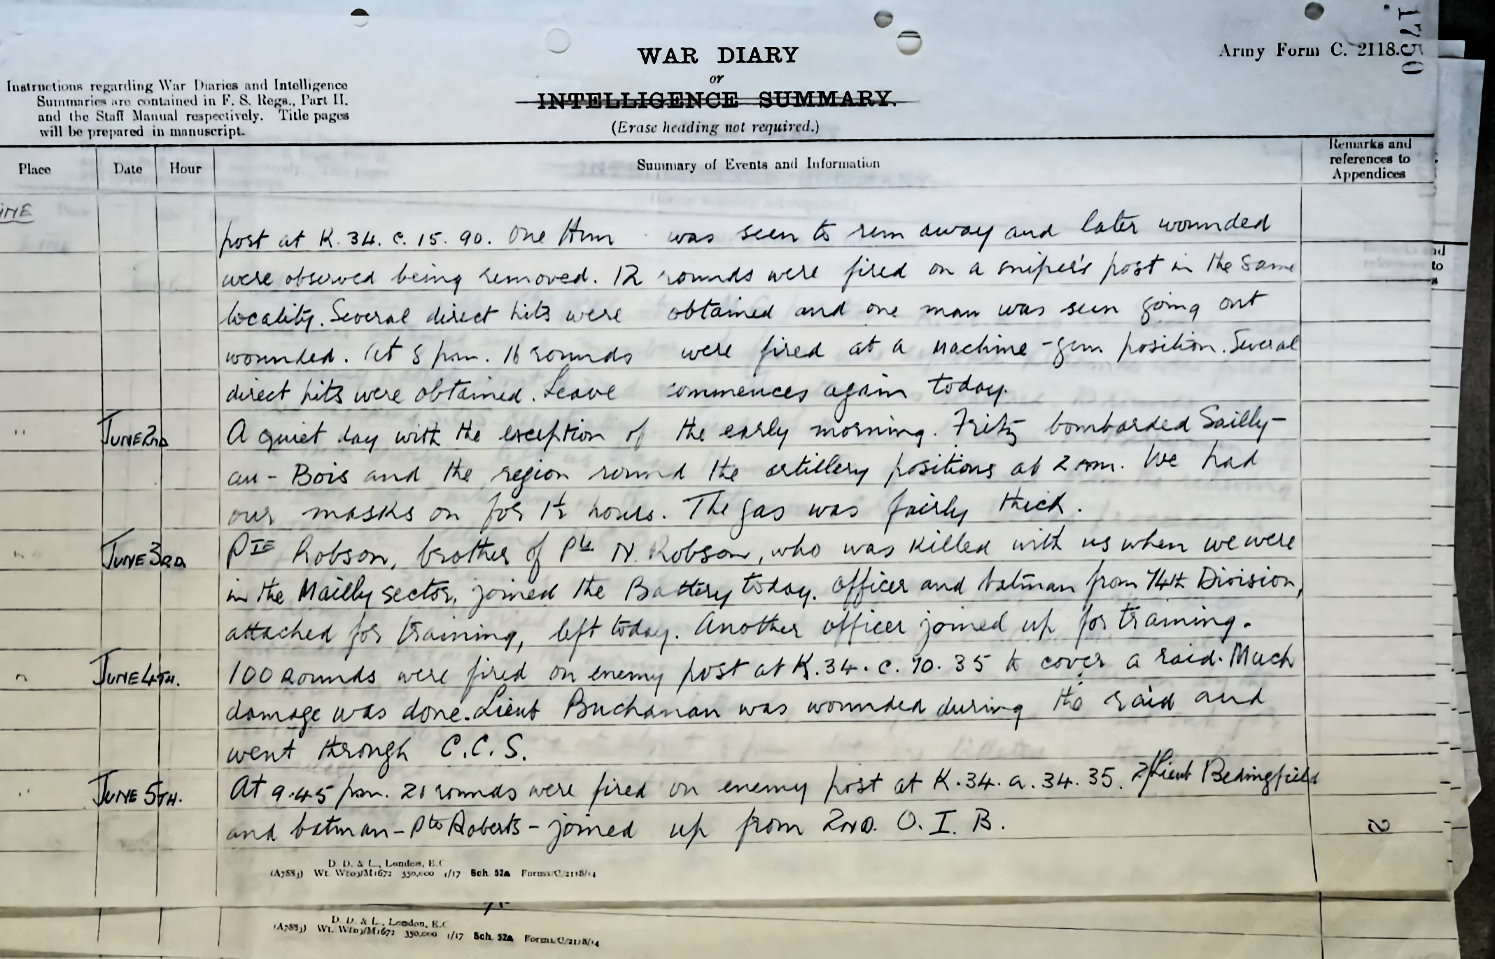 1750
Army Form C. 2118.
WAR DIARY
or
INTELLIGENCE SUMMARY.
(Erase heading not required.)
Instructions regarding War Diaries and Intelligence
Summaries are contained in F. S. Regs., Part II.
and the Staff Manual respectively. Title pages
will be prepared in manuscript.
Place Date Hour Summary of Events and Information Remarks and references to Appendices
post at K. 34. c. 15. 90. One Hun was seen to run away and later wounded
were observed being removed. 12 rounds were fired on a sniper's post in the same
locality. Several direct hits were obtained and one man was seen going out
wounded. At 5 p.m. 16 rounds were fired at a machine-gun position. Several
direct hits were obtained. Leave commences again today.
" JUNE 2ND A quiet day with the exception of the early morning. Fritz bombarded Sailly-
au-Bois and the region round the artillery positions at 2 am. We had
our masks on for 1½ hours. The gas was fairly thick.
" JUNE 3RD. Pte Robson, brother of Pte N. Robson, who was killed with us when we were
in the Mailly sector, joined the Battery today. Officer and batman from 74th Division,
attached for training, left today. Another officer joined up for training.
" JUNE 4TH. 100 rounds were fired on enemy post at K. 34. c. 70. 35 to cover a raid. Much
damage was done. Lieut Buchanan was wounded during the raid and
went through C.C.S.
" JUNE 5TH. At 9.45 p.m. 21 rounds were fired on enemy post at K. 34. a. 34. 35. 2/Lieut Bedingfield
and batman - Pte Roberts - joined up from 2ND. O. I. B.
2
D. D. & L., London, E.C.
(A7883) Wt. W809/M1672 350,000 4/17 Sch. 52a Forms/C/2118/14
D. D. & L., London, E.C.
(A7883) Wt. W809/M1672 350,000 4/17 Sch. 52a Forms/C/2118/14